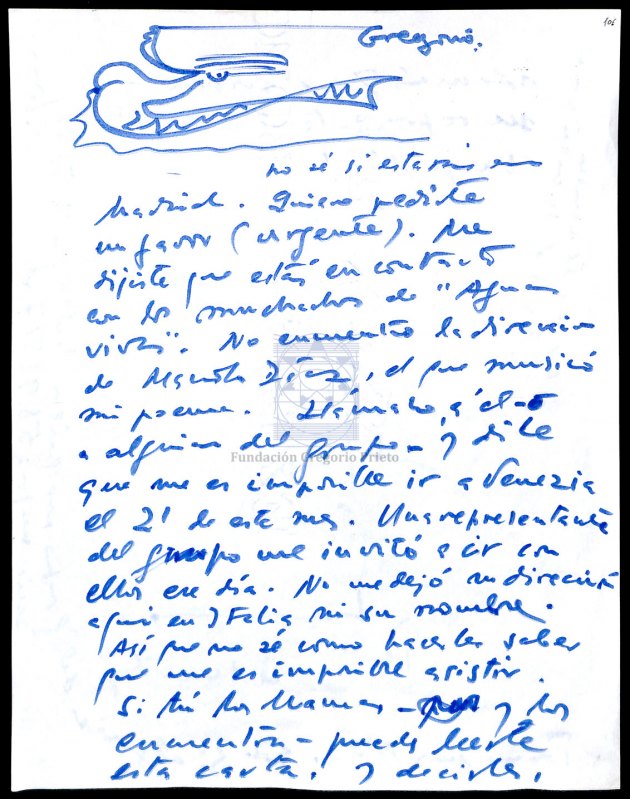 106
Gregorio.
no sé si estarás en
Madrid. Quiero pedirte
un favor (urgente). Me
dijiste que estás en contacto
con los muchachos de "Aguas
vivas". No encuentro la dirección
de Manolo Díaz, el que musicó
mi poema. Llámalo a él -o
a alguien del grupo- y dile
Fundación Gregorio Prieto
que me es imposible ir a Venezia
el 21 de este mes. Una representante
del grupo me invitó a ir con
ellos ese día. No me dejó su dirección
aquí en Italia ni su nombre.
Así que no sé como hacerles saber
que me es imposible asistir.
Si tú los llamas - y los
encuentras - puedes leerle
esta carta. y decirles,